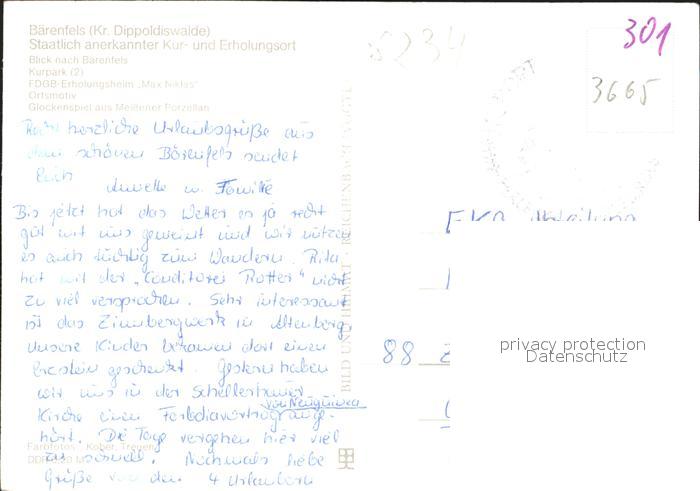 Bärenfels (Kr. Dippoldiswalde)
Staatlich anerkannter Kur- und Erholungsort
Blick nach Bärenfels
Kurpark (2)
FDGB-Erholungsheim „Max Niklas“
Ortsmotiv
Glockenspiel aus Meißener Porzellan
8234
301
3665
Recht herzliche Urlaubsgrüße aus
dem schönen Bärenfels sendet
Euch
Annette u. Familie
Bis jetzt hat das Wetter es ja recht
gut mit uns gemeint und wir nützen
es auch tüchtig zum Wandern. Rita
hat mit der „Conditorei Rotter“ nicht
zu viel versprochen. Sehr interessant
ist das Zinnbergwerk in Altenberg.
Unsere Kinder bekamen dort einen
Erzstein geschenkt. Gestern haben
wir uns in der Schellerhauer
Kirche einen Farbdiavortrag ange-
von Neuguinea
hört. Die Tage vergehen hier viel
zu schnell. Nochmals liebe
Grüße von den 4 Urlaubern
Farbfotos: Kober, Treuen
BILD UND HEIMAT REICHENBACH
Abteilung
88
privacy protection
Datenschutz